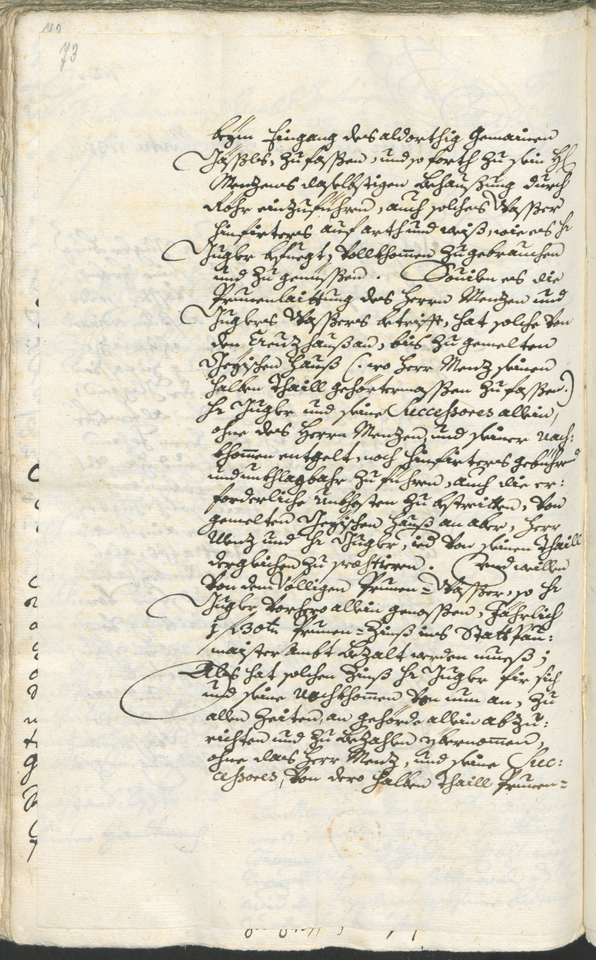 73
beÿm Eingang des aldorthig Gemainen
Gäßls, zufassen, und so forth zu sein H:
Mentzens daselbstigen Behaußung durch
Röhr einzuführen, auch solches Wasser
hinfüro auf arth und weiß, wie es H:
Gugler befuegt, vollkhommen zugebrauchen
und zu geniessen. Souiler es die
Prunenlaittung des Herrn Mentzen und
Guglers Wassers betrifft, hat solche von
den Creutzhauß an, bis zu gemelten
Hauß (: wo Herr Mentz seinen
halben Thaill gehörtermassen zufassen :)
H: Gugler und seine Successores allein,
ohne des Herrn Mentzen, und seiner Nach:
khommen entgelt, noch hinfüro
und unkhlagbahr zu führen, auch die er:
forderliche Unkhosten zu bestreitten, von
gemelten Hauß an aber, Herr
Mentz und H: Gugler, ied von seinen Thaill
dergleichen zu præstieren. Und weillen
von dem völligen Prunen-Wasser, so H:
Gugler vorhero allein genossen, Jährlich
1 f 30 kr Prunen-Zinß ins Statt Pau:
maister Ambt bezalt werden mueß,
Als hat solchen Zinß H: Gugler für sich
und seine Nachkhommen von nun an, zu
allen Zeiten, an gehörde allein abzu:
richten und zu bezahlen ybernommen,
ohne das Herr Mentz, und seine Suc:
cessores, von dero halben Thaill Prunen-